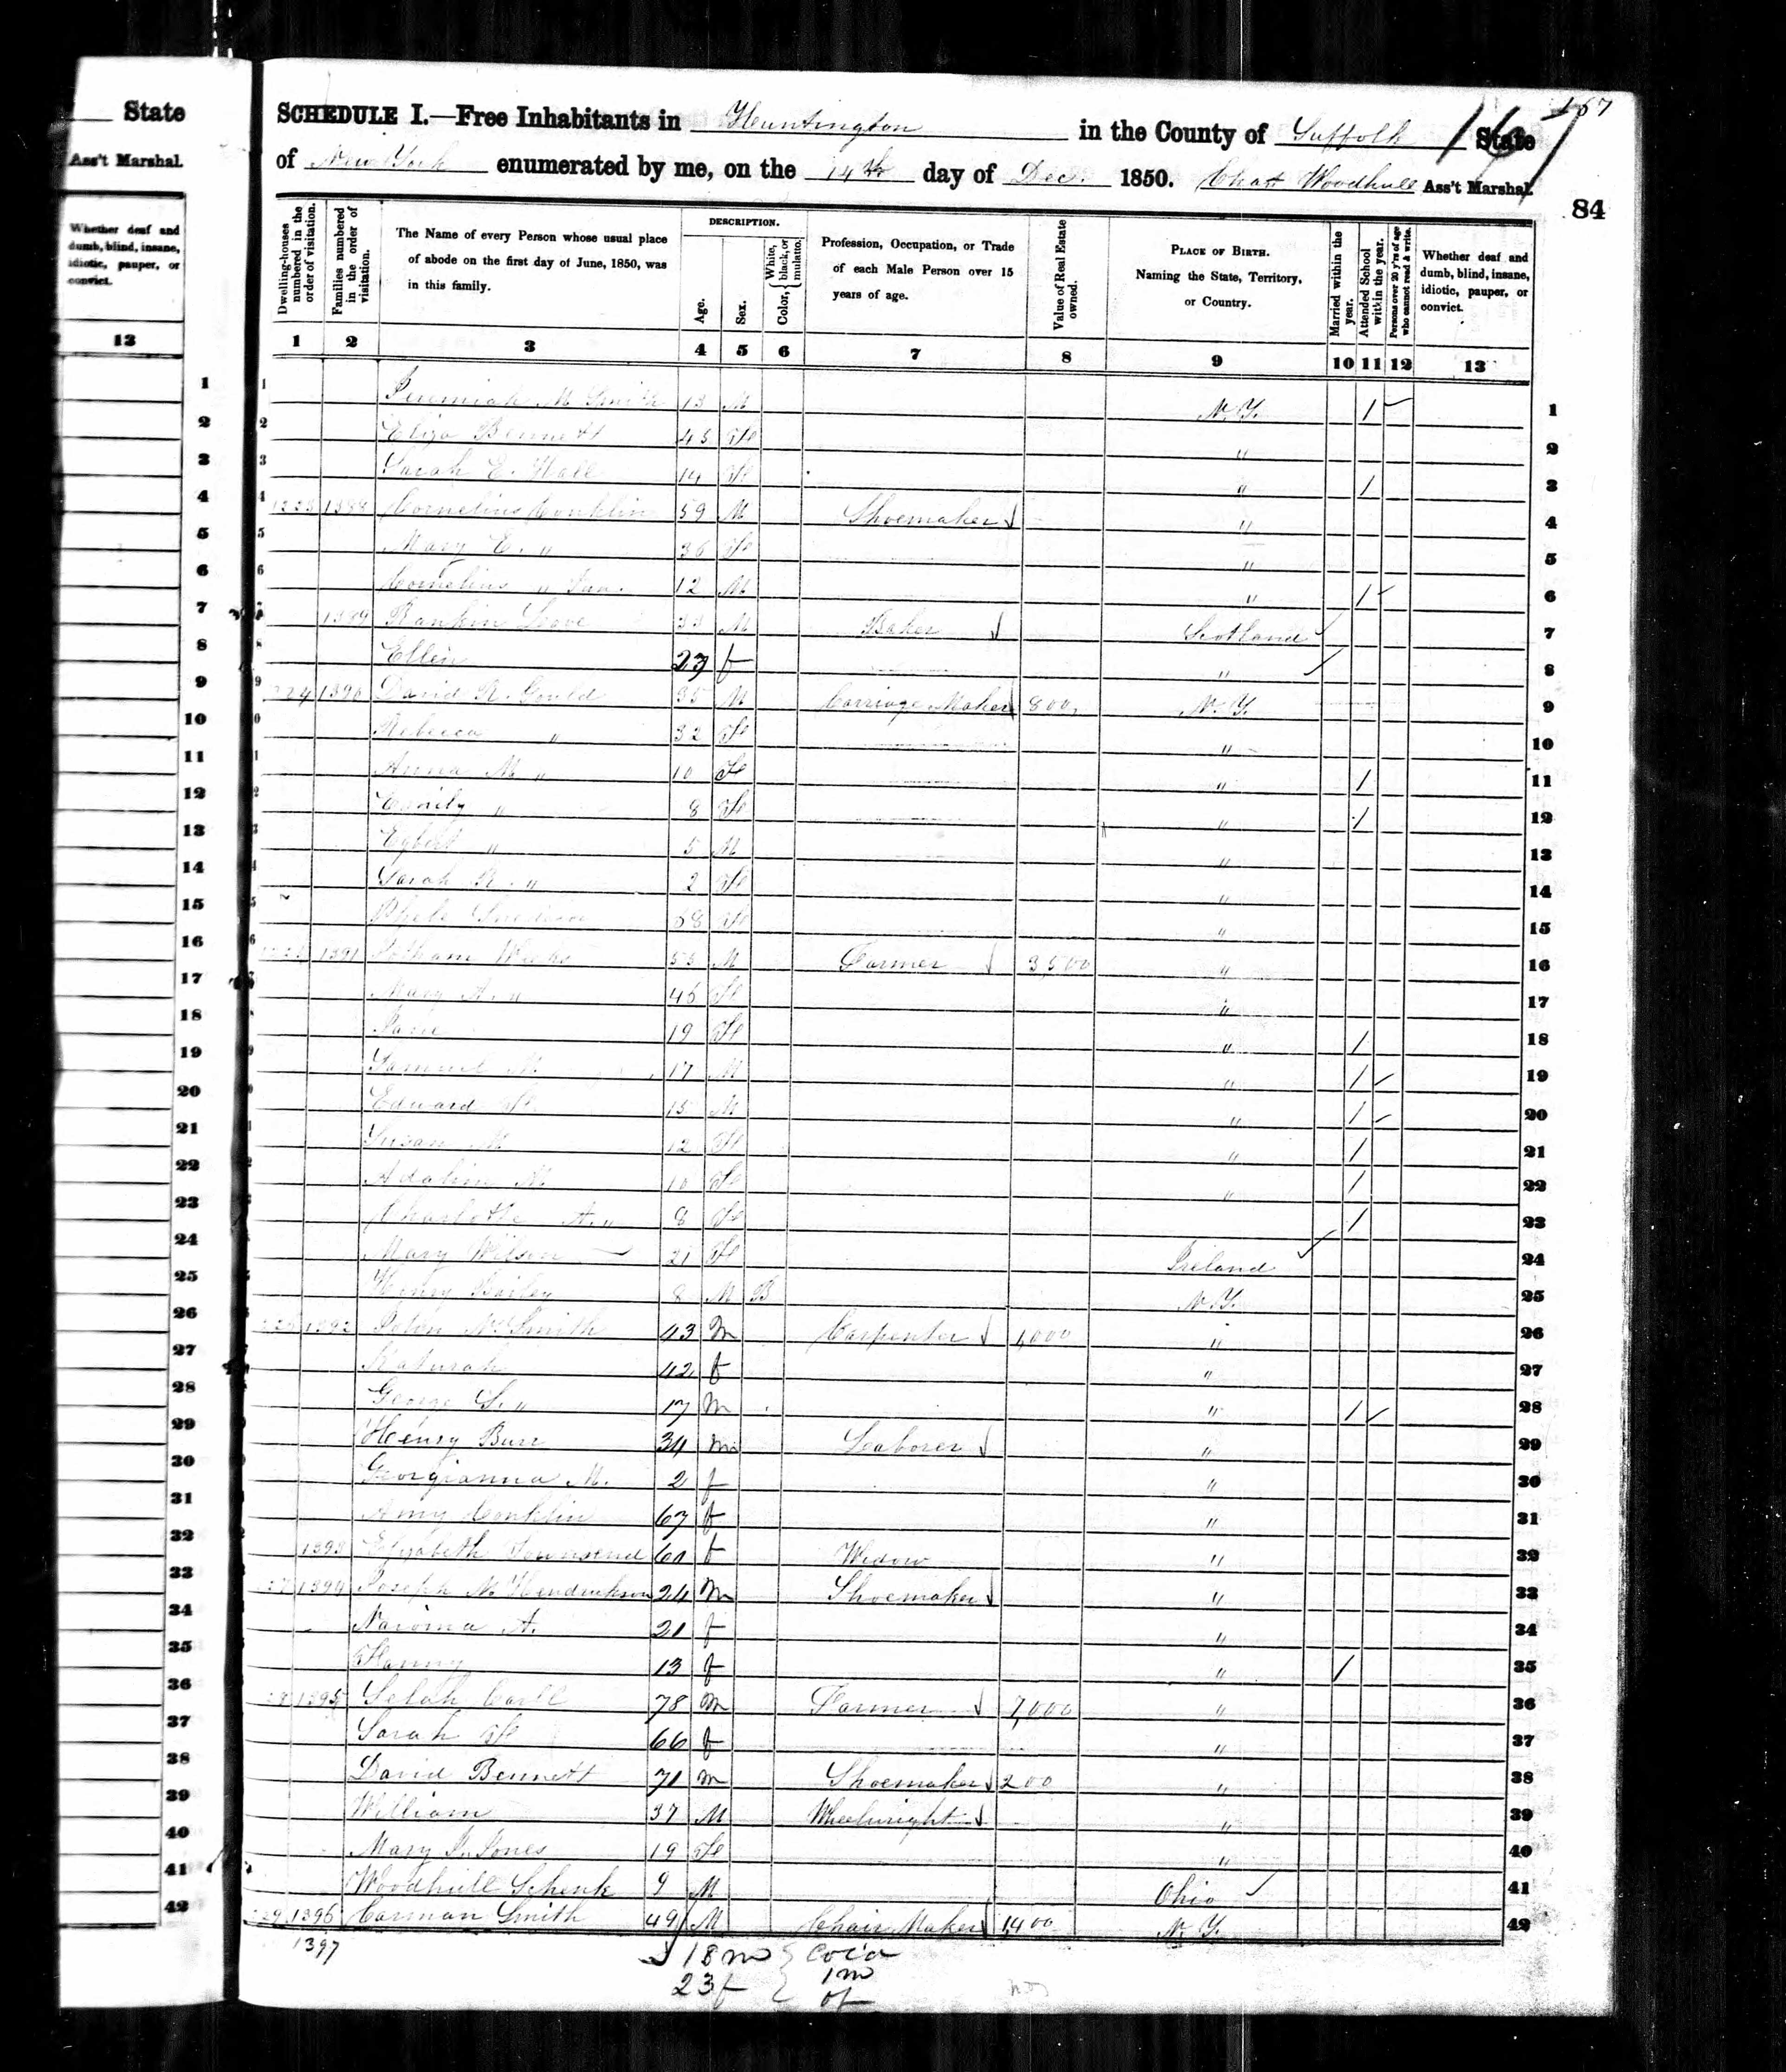 State
Ass't Marshal.
Whether deaf and dumb, blind, insane, idiotic, pauper, or convict.
13
167
167
84
SCHEDULE I.—Free Inhabitants in Huntington in the County of Suffolk State
of New York enumerated by me, on the 14th day of Dec. 1850. Chas Woodhull Ass't Marshal.
Dwelling-houses numbered in the order of visitation.
Families numbered in the order of visitation.
The Name of every Person whose usual place of abode on the first day of June, 1850, was in this family.
DESCRIPTION.
Age.
Sex.
Color, { White, black, or mulatto.
Profession, Occupation, or Trade of each Male Person over 15 years of age.
Value of Real Estate owned.
PLACE OF BIRTH. Naming the State, Territory, or Country.
Married within the year.
Attended School within the year.
Persons over 20 y'rs of age who cannot read & write.
Whether deaf and dumb, blind, insane, idiotic, pauper, or convict.
1 2 3 4 5 6 7 8 9 10 11 12 13
1 Jeremiah M Smith 13 M N.Y. / 1
2 Eliza Bennett 45 Fe " 2
3 Sarah E. Hall 14 Fe " / 3
4 1388 Cornelius Conklin 59 M Shoemaker " 4
5 Mary E. " 36 Fe " 5
6 Cornelius " Jun. 12 M " / 6
7 1389 Rankin 33 M Baker Scotland 7
8 Ellen 23 f " 8
9 1390 David R. Gould 35 M Carriage Maker 800 N.Y. 9
10 Rebecca " 32 Fe " 10
11 Anna M " 10 Fe " / 11
12 Emily " 8 Fe " / 12
13 Egbert " 5 M " 13
14 Sarah R. " 2 Fe " 14
15 58 Fe " 15
16 1391 Jotham Weeks 53 M Farmer 3,500 " 16
17 Mary A. " 46 Fe " 17
18 Jane 19 Fe " / 18
19 Samuel M 17 M " / 19
20 Edward 15 M " / 20
21 Susan M 12 Fe " / 21
22 Adaline 10 Fe " / 22
23 Charlotte A. " 8 Fe " / 23
24 Mary Wilson 21 Fe Ireland 24
25 Henry Bailey 8 M B N.Y. 25
26 1392 Platt Smith 43 m Carpenter 1,000 " 26
27 Katurah 42 f " 27
28 George S. " 17 m " / 28
29 Henry Burr 34 m Laborer " 29
30 Georgianna M. 2 f " 30
31 Amy Conklin 67 f " 31
32 1393 Elizabeth Townsend 60 f Widow " 32
33 1394 Joseph M. Hendrickson 24 m Shoemaker " 33
34 Naroma A. 21 f " 34
35 Fanny 13 f " / 35
36 1395 Selah Carll 78 m Farmer 7,000 " 36
37 Sarah 66 f " 37
38 David Bennett 71 m Shoemaker 200 " 38
39 William 37 M Wheelwright " 39
40 Mary J. Jones 19 Fe " 40
41 Woodhull Schenk 9 M Ohio 41
42 1396 Carman Smith 49 M Chair Maker 1,400 N.Y. 42
1397
18 m } Col'd
23 f } 1 m
0 f